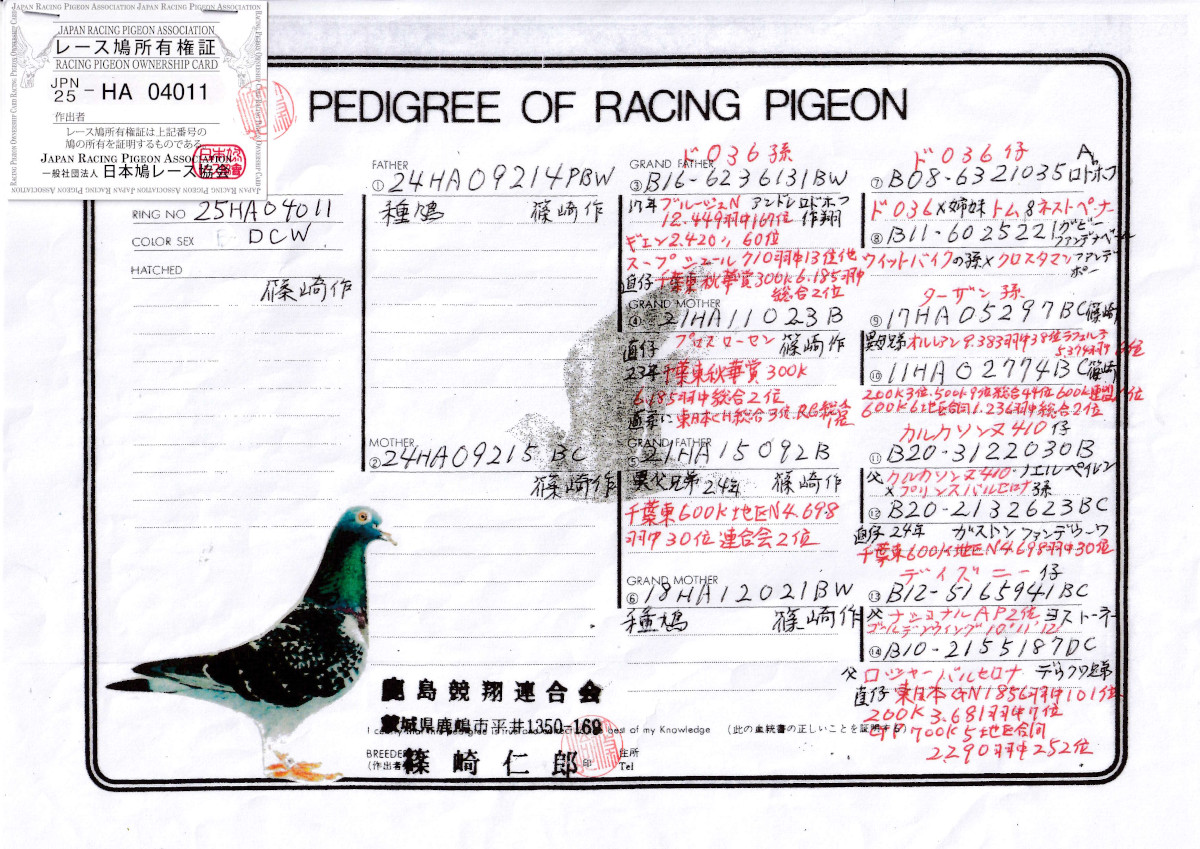 JAPAN RACING PIGEON ASSOCIATION JAPAN RACING PIGEON ASSOCIATION
JAPAN RACING PIGEON ASSOCIATION
レース鳩所有権証
RACING PIGEON OWNERSHIP CARD
JPN
25 - HA 04011
作出者
レース鳩所有権証は上記番号の
鳩の所有を証明するものである。
JAPAN RACING PIGEON ASSOCIATION
一般社団法人 日本鳩レース協会
PEDIGREE OF RACING PIGEON
RING NO 25HA04011
COLOR SEX DCW
HATCHED
篠崎作
FATHER
① 24HA09214PBW
種鳩 篠崎作
MOTHER
② 24HA09215 BC
篠崎作
ド036孫
GRAND FATHER
③ B16-6236131BW
17年ブルージュN アンドレロドホフ
12.449羽中167位 作翔
ギエン2.420〃 60位
スープシュールク710羽中13位他
直仔千葉東秋華賞300K6.185羽中
総合2位
GRAND MOTHER
④ 21HA11023B
プロスローセン 篠崎作
直仔
23年千葉東秋華賞300K
6.185羽中総合2位
直系に東日本CH総合3位、RG総合
GRAND FATHER
⑤ 21HA15092B
異父兄弟 24年 篠崎作
千葉東600K地区N4.698
羽中30位連合会2位
GRAND MOTHER
⑥ 18HA12021BW
種鳩 篠崎作
ド036仔
⑦ B08-6321035 ロドホフ
ド036×姉妹トム&ネストペーナー
⑧ B11-6025221
ウイットバイクの孫×クロスタマン
ターザン孫
⑨ 17HA05297BC 篠崎
異母兄弟オルレアン9.383羽中38位
⑩ 11HA02774BC 篠崎
200K3位、500K9位総合44位600K連盟1位
600K6地区合同1.236羽中総合2位
カルカソンヌ410仔
⑪ B20-3122030B
父カルカソンヌ410-ノエルペイレン
×プリンスバルセロナ孫
⑫ B20-2132623BC
直仔24年 ガストンファンデウーワ
千葉東600K地区N4.698羽中30位
デイズニー仔
⑬ B12-5165941BC
父ナショナルAP2位 ヨストーネ
ゴールデンウイング10 11 12
⑭ B10-2155187DC
父ロジャーバルセロナ
直仔東日本GN1856羽中101位
200K3.681羽中7位
700K5地区合同
2.290羽中252位
鹿島競翔連合会
茨城県鹿嶋市平井1350-169
I certify that this pedigree is true and correct to the best of my Knowledge (此の血統書の正しいことを証明する)
BREEDER
(作出者) 篠崎仁郎 印
住所
Tel